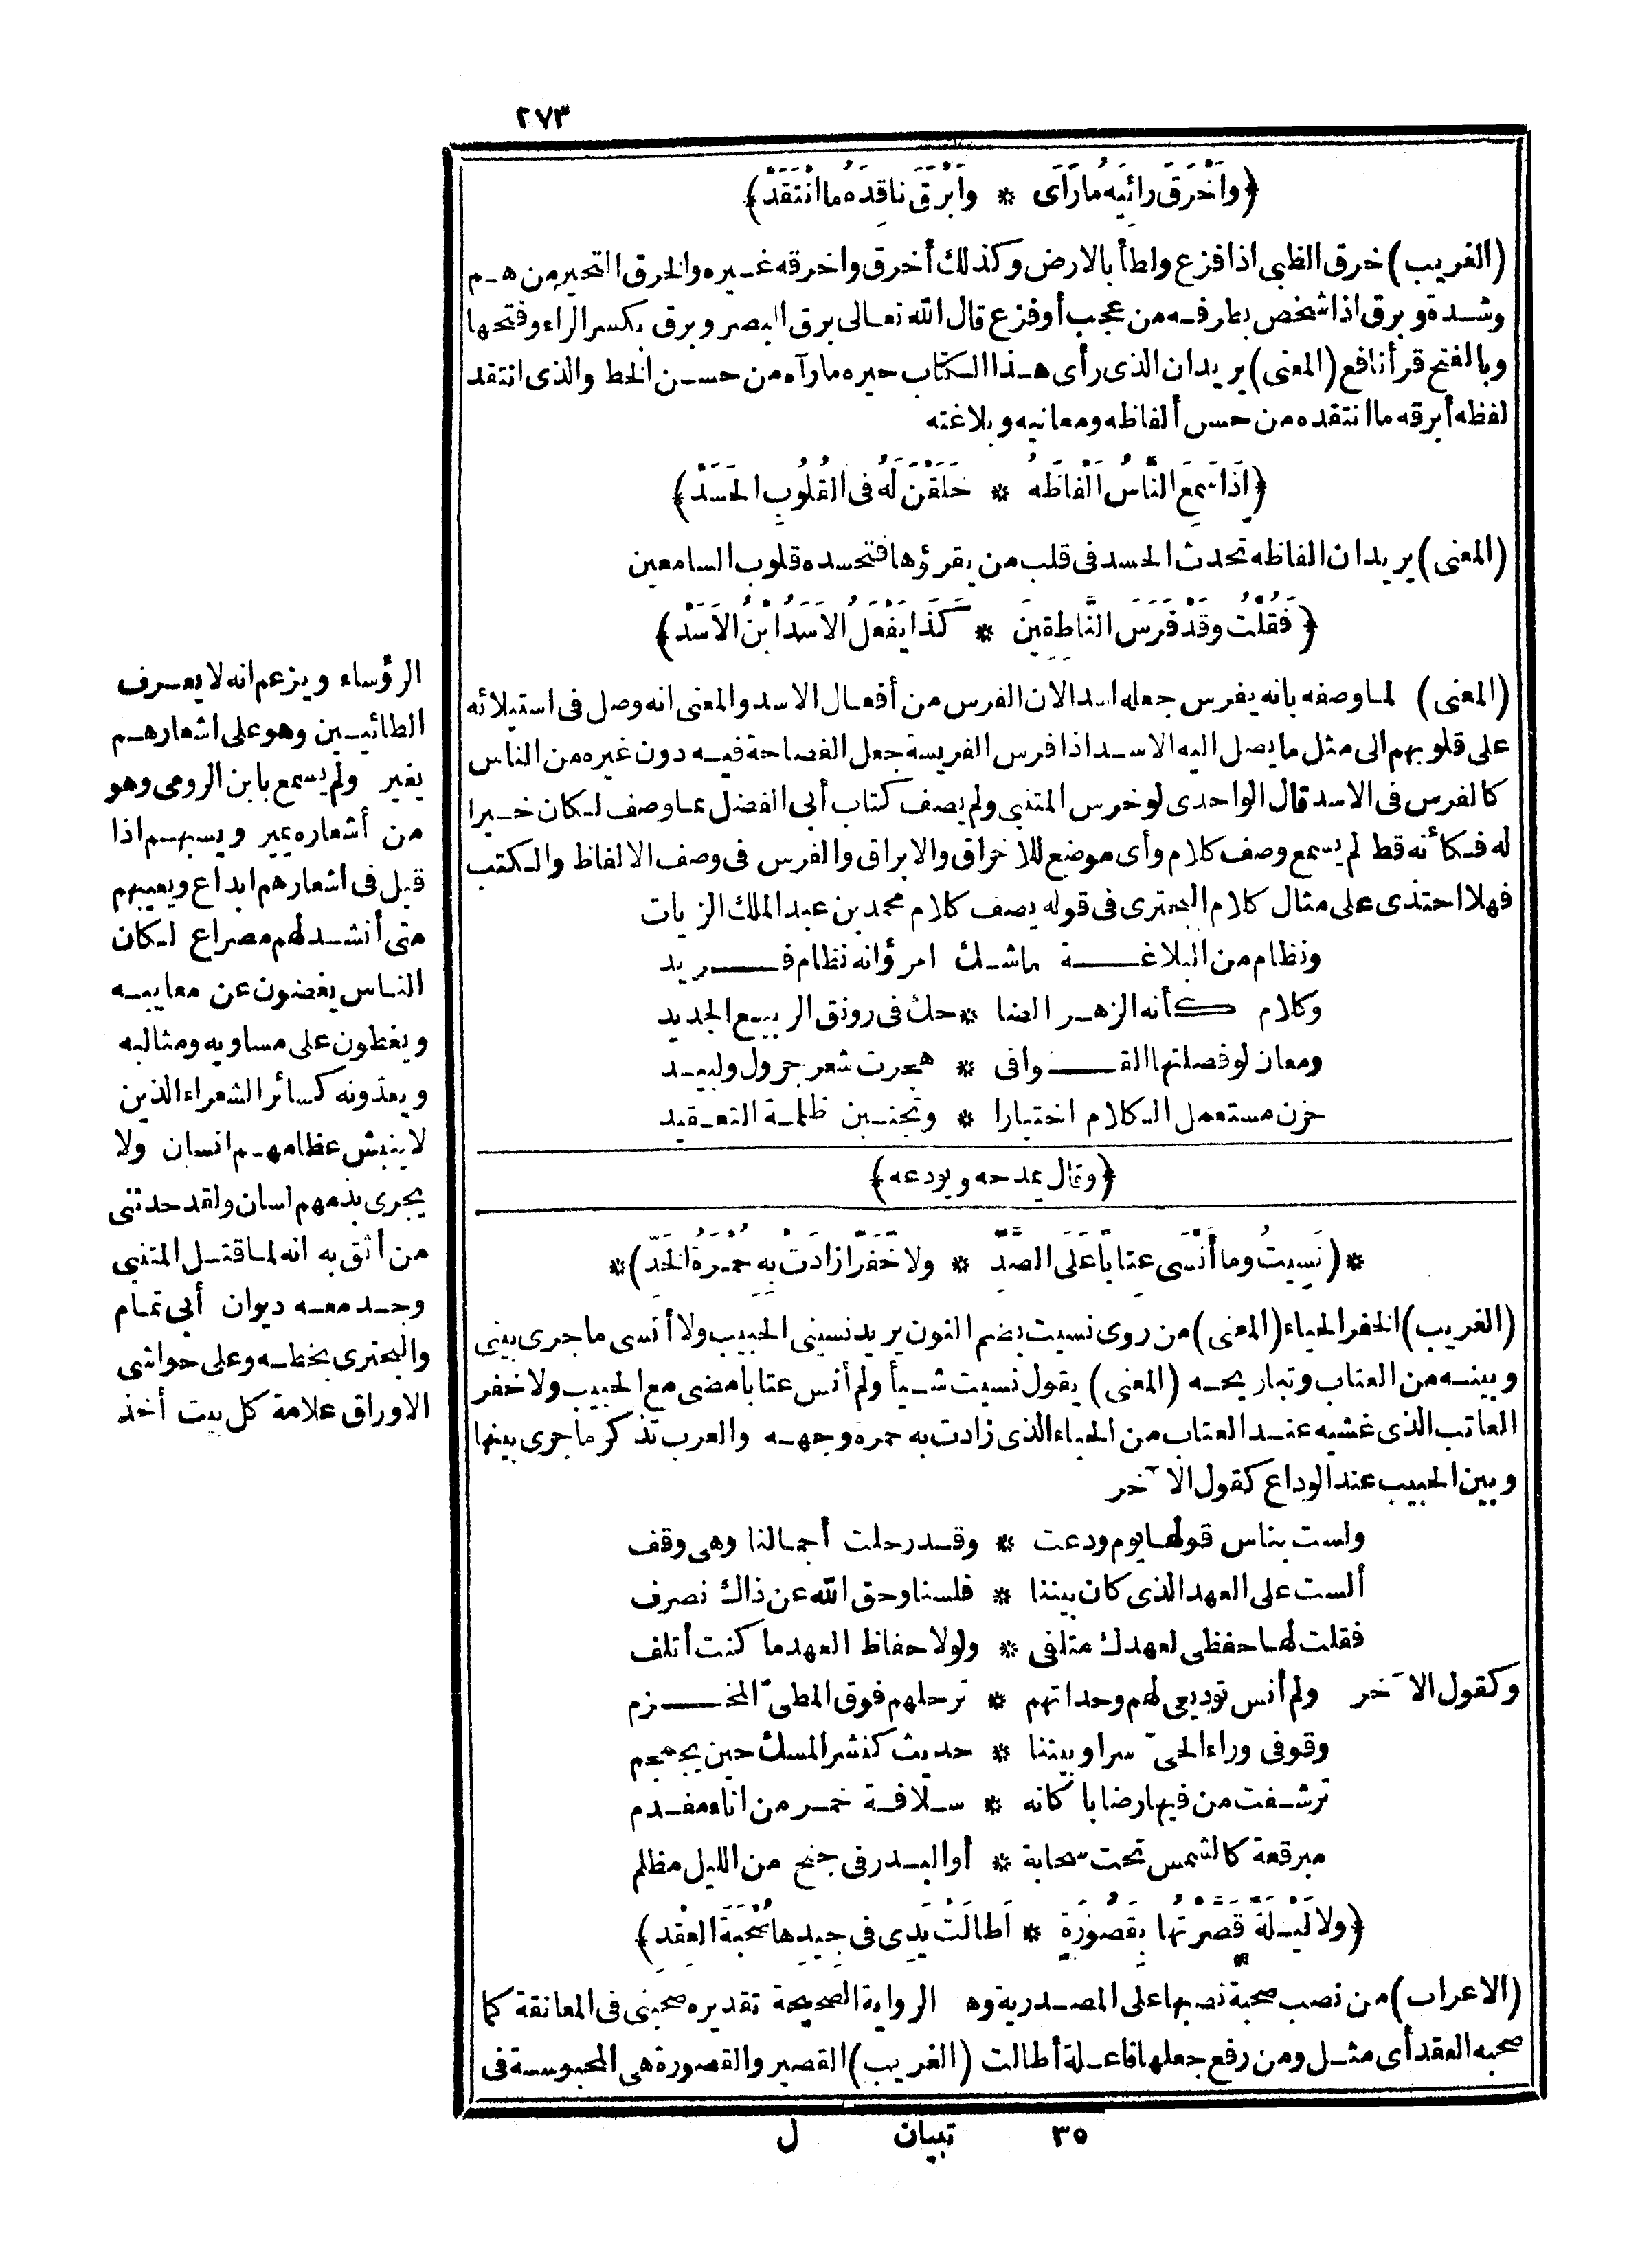 ٢٧٣
﴿وَأَخْرَقَ رَائِيَهُ مَا رَأَى * وَأَبْرَقَ نَاقِدَهُ مَا انْتَقَدْ﴾
(الغريب) خرق الظبى اذا فزع واطأ بالارض وكذلك أخرق واخرقه غيره والخرق التحير من هم
وشدة وبرق اذا شخص بطرفه من عجب أو فزع قال الله تعالى برق البصر وبرق بكسر الراء وفتحها
وبالفتح قرأ نافع (المعنى) يريد ان الذى رأى هذا الكتاب حيره ما رآه من حسن الخط والذى انتقد
لفظه أبرقه ما انتقده من حسن ألفاظه ومعانيه وبلاغته
﴿إِذَا سَمِعَ النَّاسُ اَلْفَاظَهُ * خَلَقْنَ لَهُ فى القُلُوبِ الحَسَدْ﴾
(المعنى) يريد ان الفاظه تحدث الحسد فى قلب من يقرؤها فتحسده قلوب السامعين
﴿فَقُلْتُ وقَدْ فَرَسَ النَّاطِقِينَ * كَذَا يَفْعَلُ الاَسَدُ ابْنُ الاَسَدْ﴾
(المعنى) لما وصفه بانه يفرس جعله اسدا لان الفرس من أفعال الاسد والمعنى انه وصل فى استيلائه
على قلوبهم الى مثل ما يصل اليه الاسد اذا فرس الفريسة جعل الفصاحة فيه دون غيره من الناس
كالفرس فى الاسد قال الواحدى لو خرس المتنبى ولم يصف كتاب أبى الفضل بما وصف لكان خيرا
له فكأنه قط لم يسمع وصف كلام وأى موضع للاخراق والابراق والفرس فى وصف الالفاظ والكتب
فهلا احتذى على مثال كلام البحترى فى قوله يصف كلام محمد بن عبد الملك الزيات
ونظام من البلاغة ماشك امرؤ انه نظام فريد
وكلام كأنه الزهر الضا * حك فى رونق الربيع الجديد
ومعان لو فصلتها القوافى * هجرت شعر جرول ولبيد
حزن مستعمل الكلام اختيارا * وتجنبن ظلمة التعقيد
﴿وقال يمدحه ويودعه﴾
*(نَسِيتُ وما أَنْسَى عِتَابًا عَلَى الصَّدِّ * ولا خَفَرًا زادَتْ بِهِ حُمْرَةُ الخَدِّ)*
(الغريب) الخفر الحياء (المعنى) من روى نسيت بضم النون يريد نسينى الحبيب ولا أنسى ما جرى بينى
وبينه من العتاب وتباريحه (المعنى) يقول نسيت شيأ ولم أنس عتابا مضى مع الحبيب ولا خفر
العاتب الذى غشيه عند العتاب من الحياء الذى زادت به حمرة وجهه والعرب تذكر ما جرى بينها
وبين الحبيب عند الوداع كقول الآخر
ولست بناس قولها يوم ودعت * وقد رحلت أجمالنا وهى وقف
ألست على العهد الذى كان بيننا * فلسنا وحق الله عن ذاك نصرف
فقلت لها حفظى لعهدك متلفى * ولولا حفاظ العهد ما كنت أتلف
وكقول الآخر ولم أنس توديعى لهم وحداتهم * ترحلهم فوق المطىّ المخزم
وقوفى وراء الحىّ سرا وبيننا * حديث كنشر المسك حين يجمجم
ترشفت من فيها رضابا كانه * سلافة خمر من اناء مفدم
مبرقعة كالشمس تحت سحابة * أو البدر فى جنح من الليل مظلم
﴿ولا لَيْلَةً قَصَّرْتُها بِقَصُورَةٍ * اَطالَتْ يَدِى فى جِيدِها صُحْبَةَ العِقْدِ﴾
(الاعراب) من نصب صحبة نصبها على المصدرية وه الرواية الصحيحة تقديره صحبنى فى المعانقة كما
صحبه العقد أى مثل ومن رفع جعلها فاعلة أطالت (الغريب) القصير والقصورة هى المحبوسة فى
٣٥ تبيان ل
الرؤساء ويزعم انه لا يعرف
الطائيين وهو على اشعارهم
يغير ولم يسمع بابن الرومى وهو
من أشعاره يمير ويسبهم اذا
قيل فى اشعارهم ابداع ويعيبهم
متى أنشد لهم مصراع لكان
الناس يغضون عن معايبه
ويغطون على مساويه ومثالبه
ويعدّونه كسائر الشعراء الذين
لا ينبش عظامهم انسان ولا
يجرى بذمهم لسان ولقد حدثنى
من أثق به انه لما قتل المتنبى
وجد معه ديوان أبى تمام
والبحترى بخطه وعلى حواشى
الاوراق علامة كل بيت أخذ